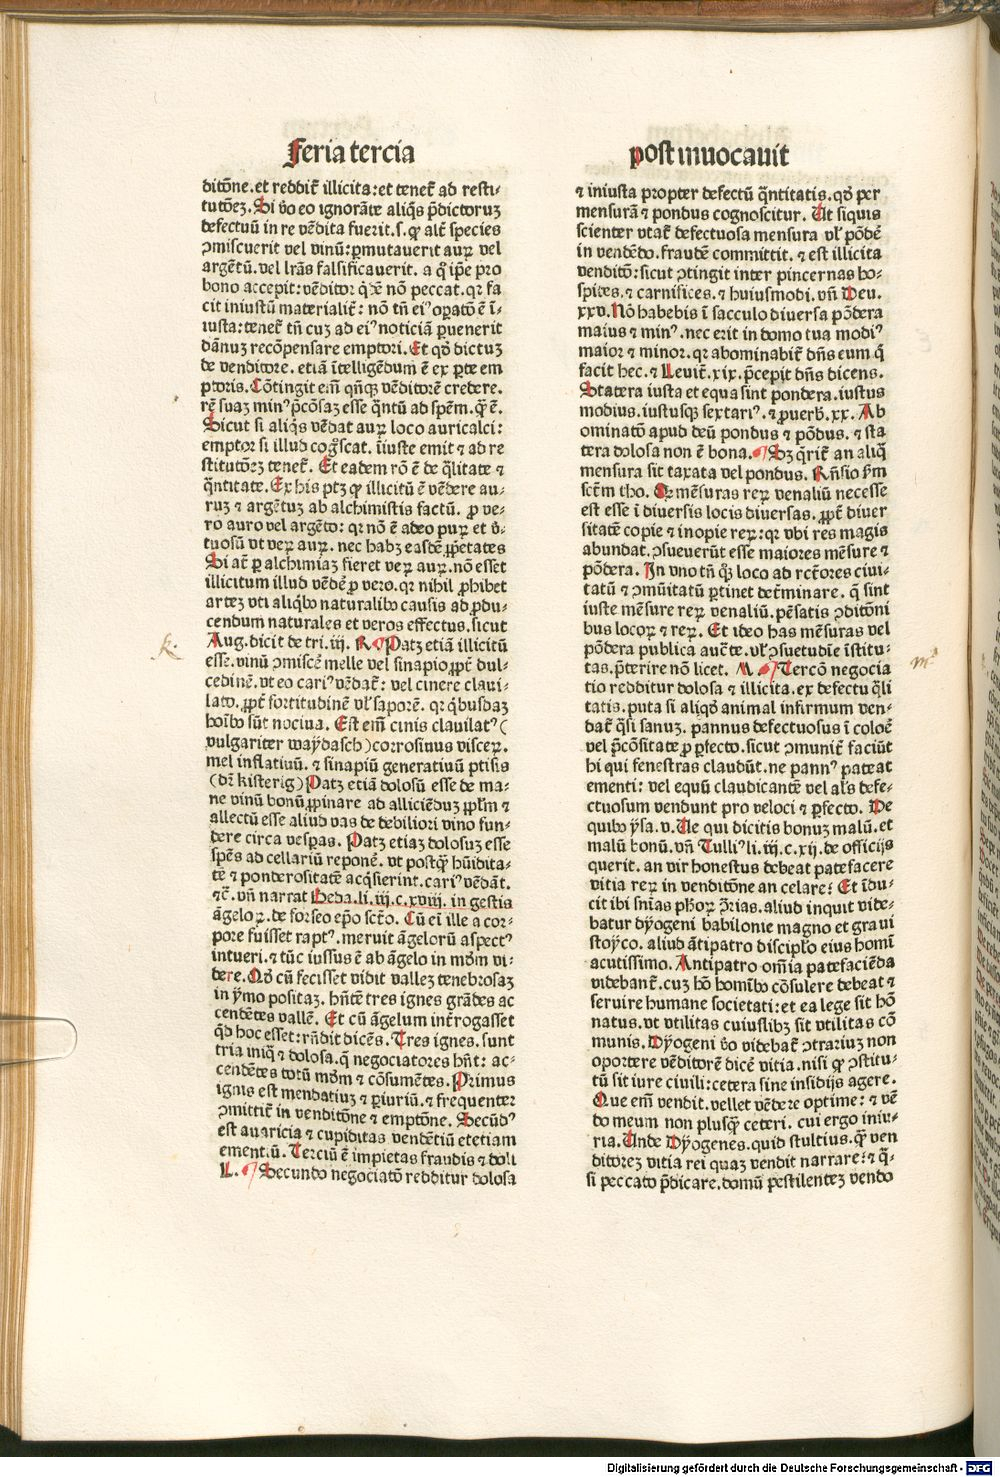 feria tercia
post inuocauit
ditōne. et reddit̄ illicita: et tenet̄ ad resti⸗
tutōeꝫ. Si v̄o eo ignorāte aliq̄s p̄dictoruꝫ
defectuū in re vēdita fuerit. s. ꝙ alt̄ species
ꝯmiscuerit vel vinū: ꝑmutauerit auꝝ vel
argētū. vel lr̄as falsificauerit. a q̄ ip̄e pro
bono accepit: vēditor q̄dē nō peccat. qr fa
cit iniustū materialit̄: nō tn̄ eiꝰ oꝑatō ē ī⸗
iusta: tenet̄ tn̄ cuꝫ ad eiꝰ noticiā ꝑuenerit
dānuꝫ recōpensare emptori. Et qd̓ dictuꝫ
de venditore. etiā ītelligēdum ē ex ꝑte em
ptoris. Cōtingit em̄ qn̄qꝫ vēditorē credere.
rē suaꝫ minꝰ p̄cōsaꝫ esse q̄ntū ad sp̄em. q̄ ē.
Sicut si aliq̄s vēdat auꝝ loco auricalci:
emptor si illud cog̓scat. īiuste emit ⁊ ad re
stitutōeꝫ tenet̄. Et eadem rō ē de q̄litate ⁊
q̄ntitate. Ex his ptꝫ ꝙ illicitū ē vēdere au⸗
ruꝫ ⁊ argētuꝫ ab alchimistis factū. ꝓ ve⸗
ro auro vel argēto: qr nō ē adeo puꝝ et v̓⸗
tuosū vt veꝝ auꝝ. nec habꝫ easdē ꝓp̄etates
Si at̄ ꝑ alchimiaꝫ fieret veꝝ auꝝ. nō esset
illicitum illud vēdē̄ ꝓ vero. qr nihil ꝓhibet
arteꝫ vti aliq̄bꝰ naturalibꝰ causis ad ꝓdu⸗
cendum naturales et veros effectus. sicut
Aug. dicit de tri. iij. K ¶ Patꝫ etiā illicitū
esse. vinū ꝯmiscē̄ melle vel sinapio ꝓpt̄ dul⸗
cedinē. vt eo cariꝰ vēdat̄: vel cinere claui⸗
lato. ꝓpt̄ fortitudinē vl̓ saporē. qr q̄busdaꝫ
hoībꝰ sūt nociua. Est em̄ cinis clauilatꝰ (
vulgariter waydasch) corrosiuus visceꝝ.
mel inflatiuū. ⁊ sinapiū generatiuū ptisis
(dr̄ kisterig) Patꝫ etiā dolosū esse de ma⸗
ne vinū bonū ꝓpinare ad alliciēduꝫ ppl̄m ⁊
allectū esse aliud vas de debiliori vino fun⸗
dere circa vespas. Patꝫ etiaꝫ dolosuꝫ esse
sp̄es ad cellariū reponē̄. vt postq̄ꝫ hūidita⸗
tē ⁊ ponderositatē acq̄sierint. cariꝰ vēdāt.
⁊c̄. vn̄ narrat Beda. li. iij. c. xviij. in gestis
āgeloꝝ. de forseo ep̄o sct̄o. Cū ei̓ ille a cor⸗
pore fuisset raptꝰ. meruit āgelorū aspectꝰ
intueri. ⁊ tūc iussus ē ab āgelo in md̓m vi⸗
dere. Qd̓ cū fecisset vidit valleꝫ tenebrosaꝫ
in ymo positaꝫ. hn̄tē tres ignes grādes ac
cendētes vallē. Et cū āgelum int̄rogasset
qd̓ hoc esset: rn̄dit dicēs. Tres ignes. sunt
tria iniq̄ ⁊ dolosa. q̄ negociatores hn̄t: ac⸗
cendētes totū md̓m ⁊ cōsumētes. Primus
ignis est mendatiuꝫ ⁊ ꝑiuriū. ⁊ frequenter
ꝯmittit̄ in venditōne ⁊ emptōne. Secūdꝰ
est auaricia ⁊ cupiditas vendētiū et etiam
ement. ū. Terciū ē impietas fraudis ⁊ doli
L. ¶ Secundo negociatō redditur dolosa
⁊ iniusta propter defectū q̄ntitatis. qd̓ per
mensurā ⁊ pondus cognoscitur. Ut siquis
scienter vtat̄ defectuosa mensura vl̓ pōdē̄
in vendēdo. fraudē committit. ⁊ est illicita
venditō: sicut ꝯtingit inter pincernas ho⸗
spites. ⁊ carnifices. ⁊ huiusmodi. vn̄ Deu.
xxv. Nō habebis ī sacculo diuersa pōdera
maius ⁊ minꝰ. nec erit in domo tua modiꝰ
maior ⁊ minor. qr abominabit̄ dn̄s eum q̄
facit hec. ⁊ Leuit̄. xix. p̄cepit dn̄s dicens.
Statera iusta et equa sint pondera. iustus
modius. iustusqꝫ sextariꝰ. ⁊ ꝓuerb̓. xx. Ab
ominatō apud deū pondus ⁊ pōdus. ⁊ sta
tera dolosa non ē bona. ¶ Sꝫ q̄rit̄ an aliq̄
mensura sit taxata vel pondus. Rn̄sio ẜm
sct̄m tho. Qr mēsuras reꝝ venaliū necesse
est esse ī diuersis locis diuersas. ꝓpt̄ diuer
sitatē copie ⁊ inopie reꝝ: qr vbi res magis
abundat. ꝯsueuerūt esse maiores mēsure ⁊
pōdera. In vno tn̄ q̄ꝫ loco ad rct̄ores ciui⸗
tatū ⁊ cōmūitatū ꝑtinet det̄minare. q̄ sint
iuste mēsure reꝝ venaliū. pēsatis ꝯditōni
bus locoꝝ ⁊ reꝝ. Et ideo has mēsuras vel
pōdera publica auc̄te. vl̓ ꝯsuetudīe īstitu⸗
tas. p̄terire nō licet. M. ¶ Tercō negocia
tio redditur dolosa ⁊ illicita. ex defectu q̄li
tatis. puta si aliqd̓ animal infirmum ven⸗
dat̄ q̄si sanuꝫ. pannus defectuosus ī coloē̄
vel p̄cōsitate ꝓ ꝑfecto. sicut ꝯmunit̄ faciūt
hi qui fenestras claudūt. ne pannꝰ pateat
ementi: vel equū claudicantē vel al̓s defe⸗
ctuosum vendunt pro veloci ⁊ ꝑfecto. De
quibꝰ ysa. v. Ue qui dicitis bonuꝫ malū. et
malū bonū. vn̄ Tulliꝰ li. iij. c. xij. de officijs
querit. an vir honestus debeat patefacere
vitia reꝝ in venditōne an celare? Et īdu⸗
cit ibi sn̄ias ph̓oꝝ ꝯ̄rias. aliud inquit vide⸗
batur dyogeni babilonie magno et graui
stoyco. aliud ātipatro discipl̓o eius homī
acutissimo. Antipatro om̄ia patefaciēda
videbant̄. cuꝫ hō homībꝰ cōsulere debeat ⁊
seruire humane societati: et ea lege sit hō
natus. vt vtilitas cuiuslibꝫ sit vtilitas cō
munis. Dyogeni v̄o videbat̄ ꝯtrariuꝫ non
oportere vēditorē dicē̄ vitia. nisi ꝙ ꝯstitu⸗
tū sit iure ciuili: cetera sine insidijs agere.
Que em̄ vendit. vellet vēdere optime: ⁊ vē
do meum non plusq̄ꝫ ceteri. cui ergo iniu⸗
ria. Unde Dyogenes. quid stultius. q̄ꝫ ven
ditoreꝫ vitia rei quaꝫ vendit narrare? ⁊ q̄⸗
si peccato p̄dicare. domū pestilenteꝫ vendo
k.
m
Digitalisierung gefördert durch die Deutsche Forschungsgemeinschaft - DFG